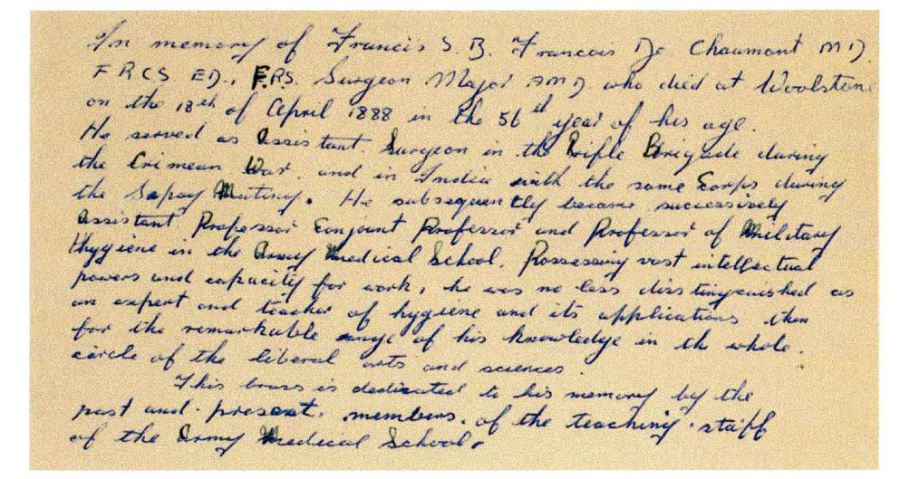 In memory of Francis S. B. Francois De Chaumont M D.
F R C S. ED., F.R.S. Surgeon Major A M D. who died at Woolston
on the 18th of April 1888 in the 56th year of his age.
He served as Assistant Surgeon in the Rifle Brigade during
the Crimean War. and in India with the same Corps during
the Sepoy Mutiny. He subsequently became successively
Assistant Professor Conjoint Professor and Professor of Military
Hygiene in the Army Medical School. Possessing vast intellectual
powers and capacity for work, he was no less distinguished as
an expert and teacher of hygiene and its applications then
for the remarkable range of his knowledge in the whole.
circle of the liberal arts and sciences.
This brass is dedicated to his memory by the
past and present. members. of the teaching staff
of the Army Medical School.